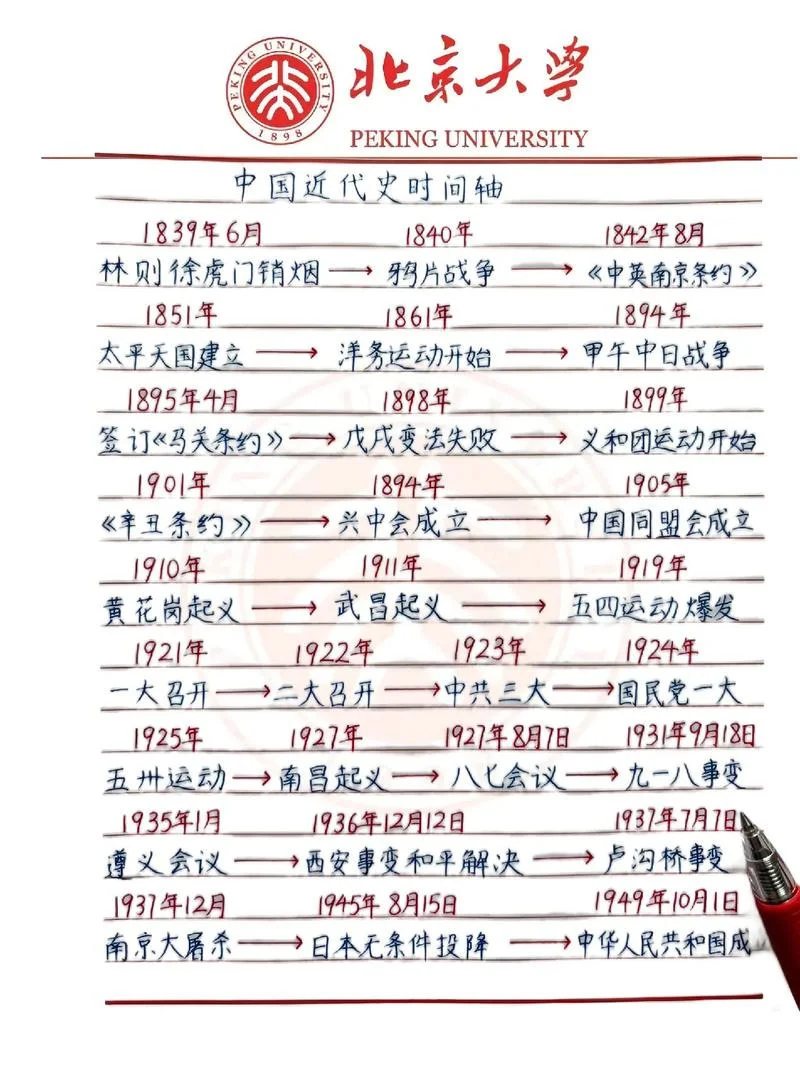 PEKING UNIVERSITY
1898
北京大学
PEKING UNIVERSITY
中国近代史时间轴
1839年6月 1840年 1842年8月
林则徐虎门销烟 → 鸦片战争 → 《中英南京条约》
1851年 1861年 1894年
太平天国建立 → 洋务运动开始 → 甲午中日战争
1895年4月 1898年 1899年
签订《马关条约》 → 戊戌变法失败 → 义和团运动开始
1901年 1894年 1905年
《辛丑条约》 → 兴中会成立 → 中国同盟会成立
1910年 1911年 1919年
黄花岗起义 → 武昌起义 → 五四运动爆发
1921年 1922年 1923年 1924年
一大召开 → 二大召开 → 中共三大 → 国民党一大
1925年 1927年 1927年8月7日 1931年9月18日
五卅运动 → 南昌起义 → 八七会议 → 九一八事变
1935年1月 1936年12月12日 1937年7月7日
遵义会议 → 西安事变和平解决 → 卢沟桥事变
1937年12月 1945年8月15日 1949年10月1日
南京大屠杀 → 日本无条件投降 → 中华人民共和国成